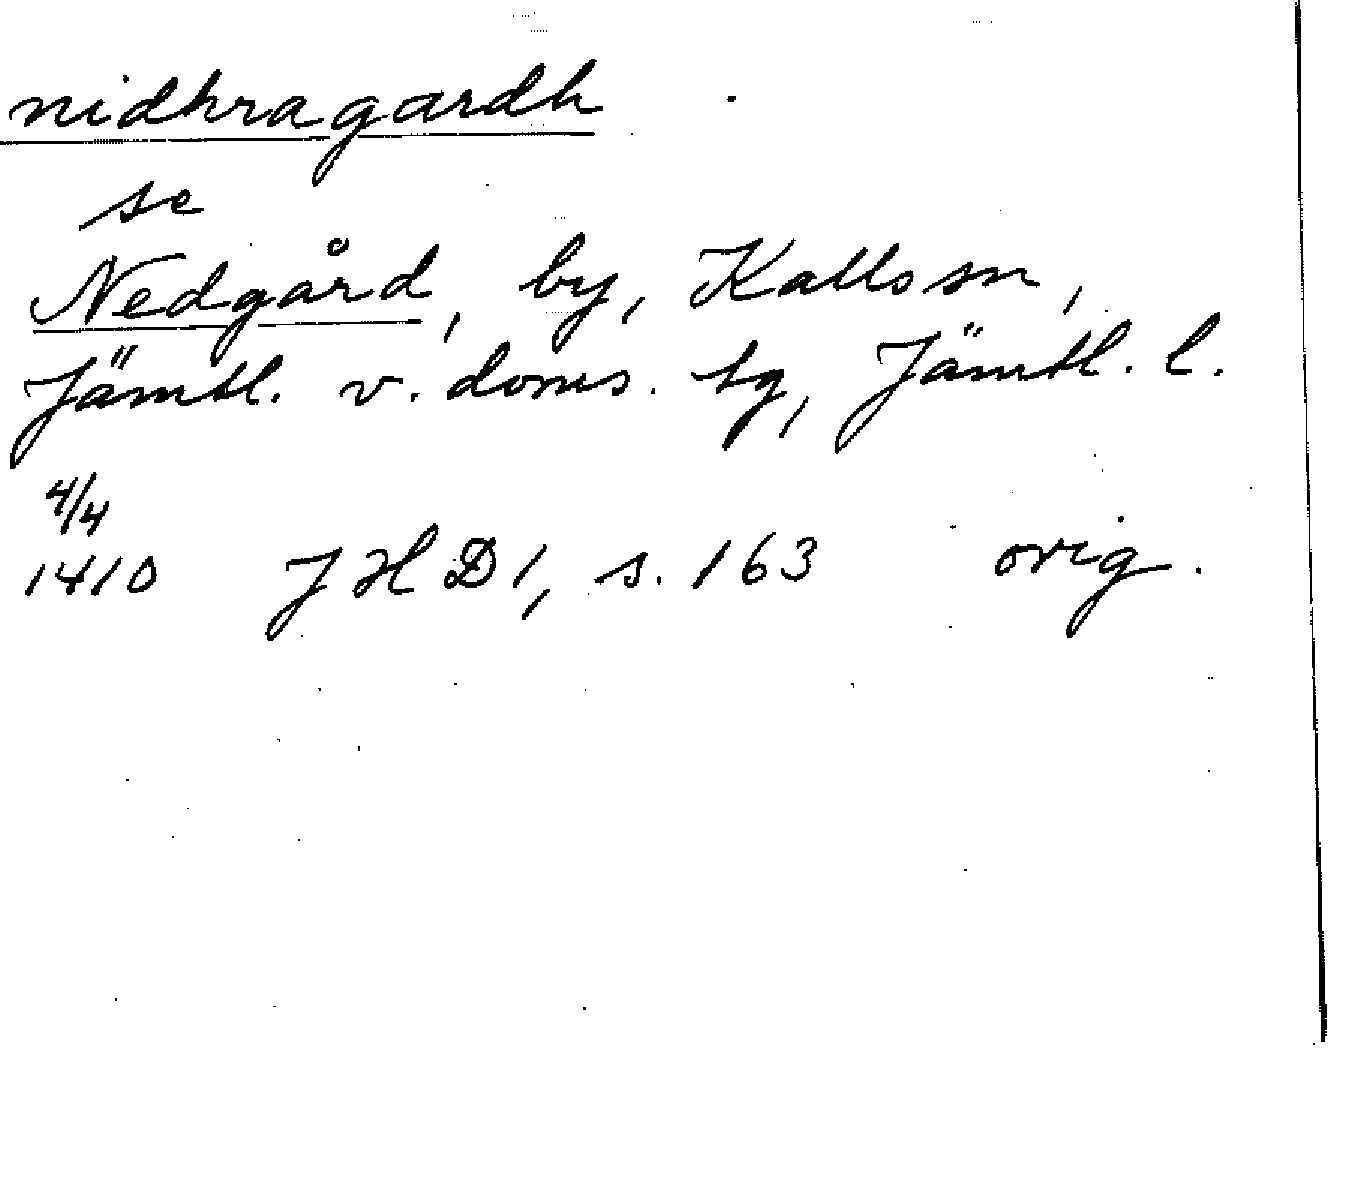 nidhragardh
se
Nedgård, by, Kalls sn,
Jämtl. v. doms. tg, Jämtl. l.
4/4
1410 JHD 1, s. 163 orig.